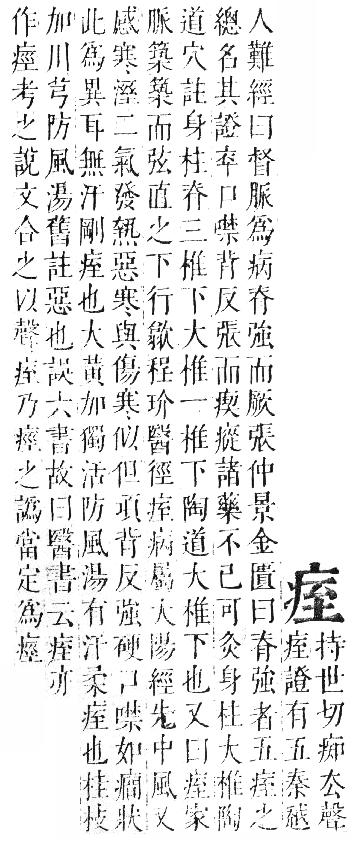 痓
持世切痴厺聲
痓證有五秦越
人難經曰督脈爲病脊強而厥張仲景金匱曰脊強者五痓之
總名其證卒口噤背反張而瘈瘲諸藥不已可灸身柱大椎陶
道穴註身柱脊三椎下大椎一椎下陶道大椎下也又曰痓家
脈築築而弦直之下行歙程玠醫徑痓病屬太陽經先中風又
感寒溼二氣發熱惡寒與傷寒似但項背反強硬口噤如癇狀
此爲異耳無汗剛痓也大黃加獨活防風湯有汗柔痓也桂枝
加川芎防風湯舊註惡也誤六書故曰醫書云痓亦
作痙考之說文合之以聲痓乃痙之譌當定爲痙